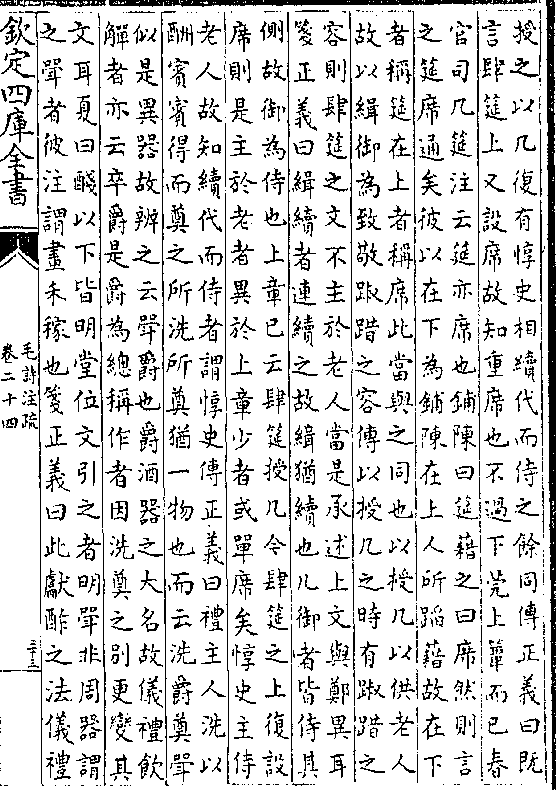 授之以几復有惇史相續代而侍之餘同傳正義曰既
言肆筵上又設席故知重席也不過下莞上簟而已春
官司几筵注云筵亦席也鋪陳曰筵藉之曰席然則言
之筵席通矣彼以在下為鋪陳在上人所蹈藉故在下
者稱筵在上者稱席此當與之同也以授几以供老人
故以緝御為致敬踧踖之容傳以授几之時有踧踖之
容則肆筵之文不主於老人當是承述上文與鄭異耳
箋正義曰緝續者連續之故緝猶續也凡御者皆侍其
側故御為侍也上章已云肆筵授几今肆筵之上復設
席則是主於老者異於上章少者或單席矣惇史主侍
老人故知續代而侍者謂惇史傳正義曰禮主人洗以
酬賓賓得而奠之所洗所奠猶一物也而云洗爵奠斝
似是異器故辨之云斝爵也爵酒器之大名故儀禮飲
觶者亦云卒爵是爵為總稱作者因洗奠之別更變其
文耳夏曰醆以下皆明堂位文引之者明斝非周器謂
之斝者彼注謂畫禾稼也箋正義曰此獻酢之法儀禮
欽定四庫全書
毛詩注疏
卷二十四
二十三